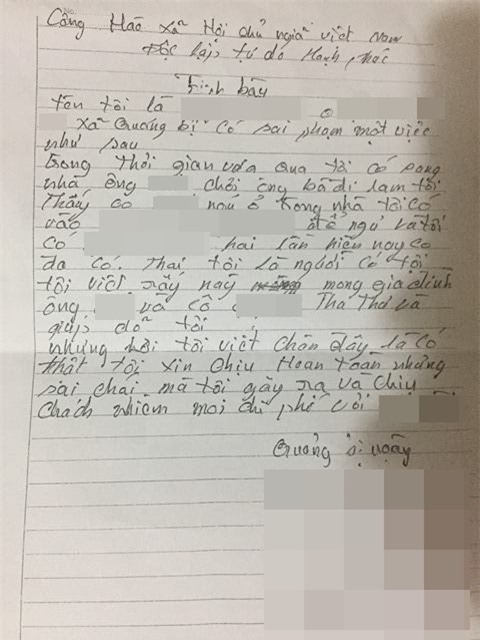 Công Hào xã Hội chủ nghiã việt Nam
Độc lập, tự do Hạnh, phúc
Trình bầu
tên tôi là
xã Quảng bị có sai phạm một việc
như sau
trong Thời gian vưa qua tôi có sang
nhà ông chơi ông bà đi lam tôi
Thấy co nau ở trong nhà tôi có
vào để ngủ và tôi
có hai lần hiện nay co
đa có Thai tôi là người có tội
tôi viết này mong gia đinh
ông và cô Tha Thư và
giúp đỡ tôi
nhưng lời tôi viết chên đây là có
thật tôi xin chịu Hoan toan nhưng
sai chai mà tôi gây ra va chiụ
chách nhiêm moi chi phế vơi
Quảng bị ngày